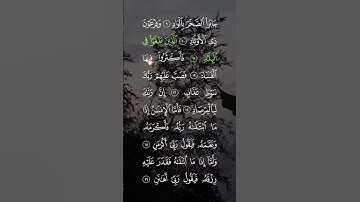 جَابُوا۟ ٱلصَّخْرَ بِٱلْوَادِ ٩ وَفِرْعَوْنَ
ذِى ٱلْأَوْتَادِ ١٠ ٱلَّذِينَ طَغَوْا۟ فِى
ٱلْبِلَـٰدِ ١١ فَأَكْثَرُوا۟ فِيهَا
ٱلْفَسَادَ ١٢ فَصَبَّ عَلَيْهِمْ رَبُّكَ
سَوْطَ عَذَابٍ ١٣ إِنَّ رَبَّكَ
لَبِٱلْمِرْصَادِ ١٤ فَأَمَّا ٱلْإِنسَـٰنُ إِذَا
مَا ٱبْتَلَىٰهُ رَبُّهُۥ فَأَكْرَمَهُۥ
وَنَعَّمَهُۥ فَيَقُولُ رَبِّىٓ أَكْرَمَنِ ١٥
وَأَمَّآ إِذَا مَا ٱبْتَلَىٰهُ فَقَدَرَ عَلَيْهِ
رِزْقَهُۥ فَيَقُولُ رَبِّىٓ أَهَـٰنَنِ ١٦